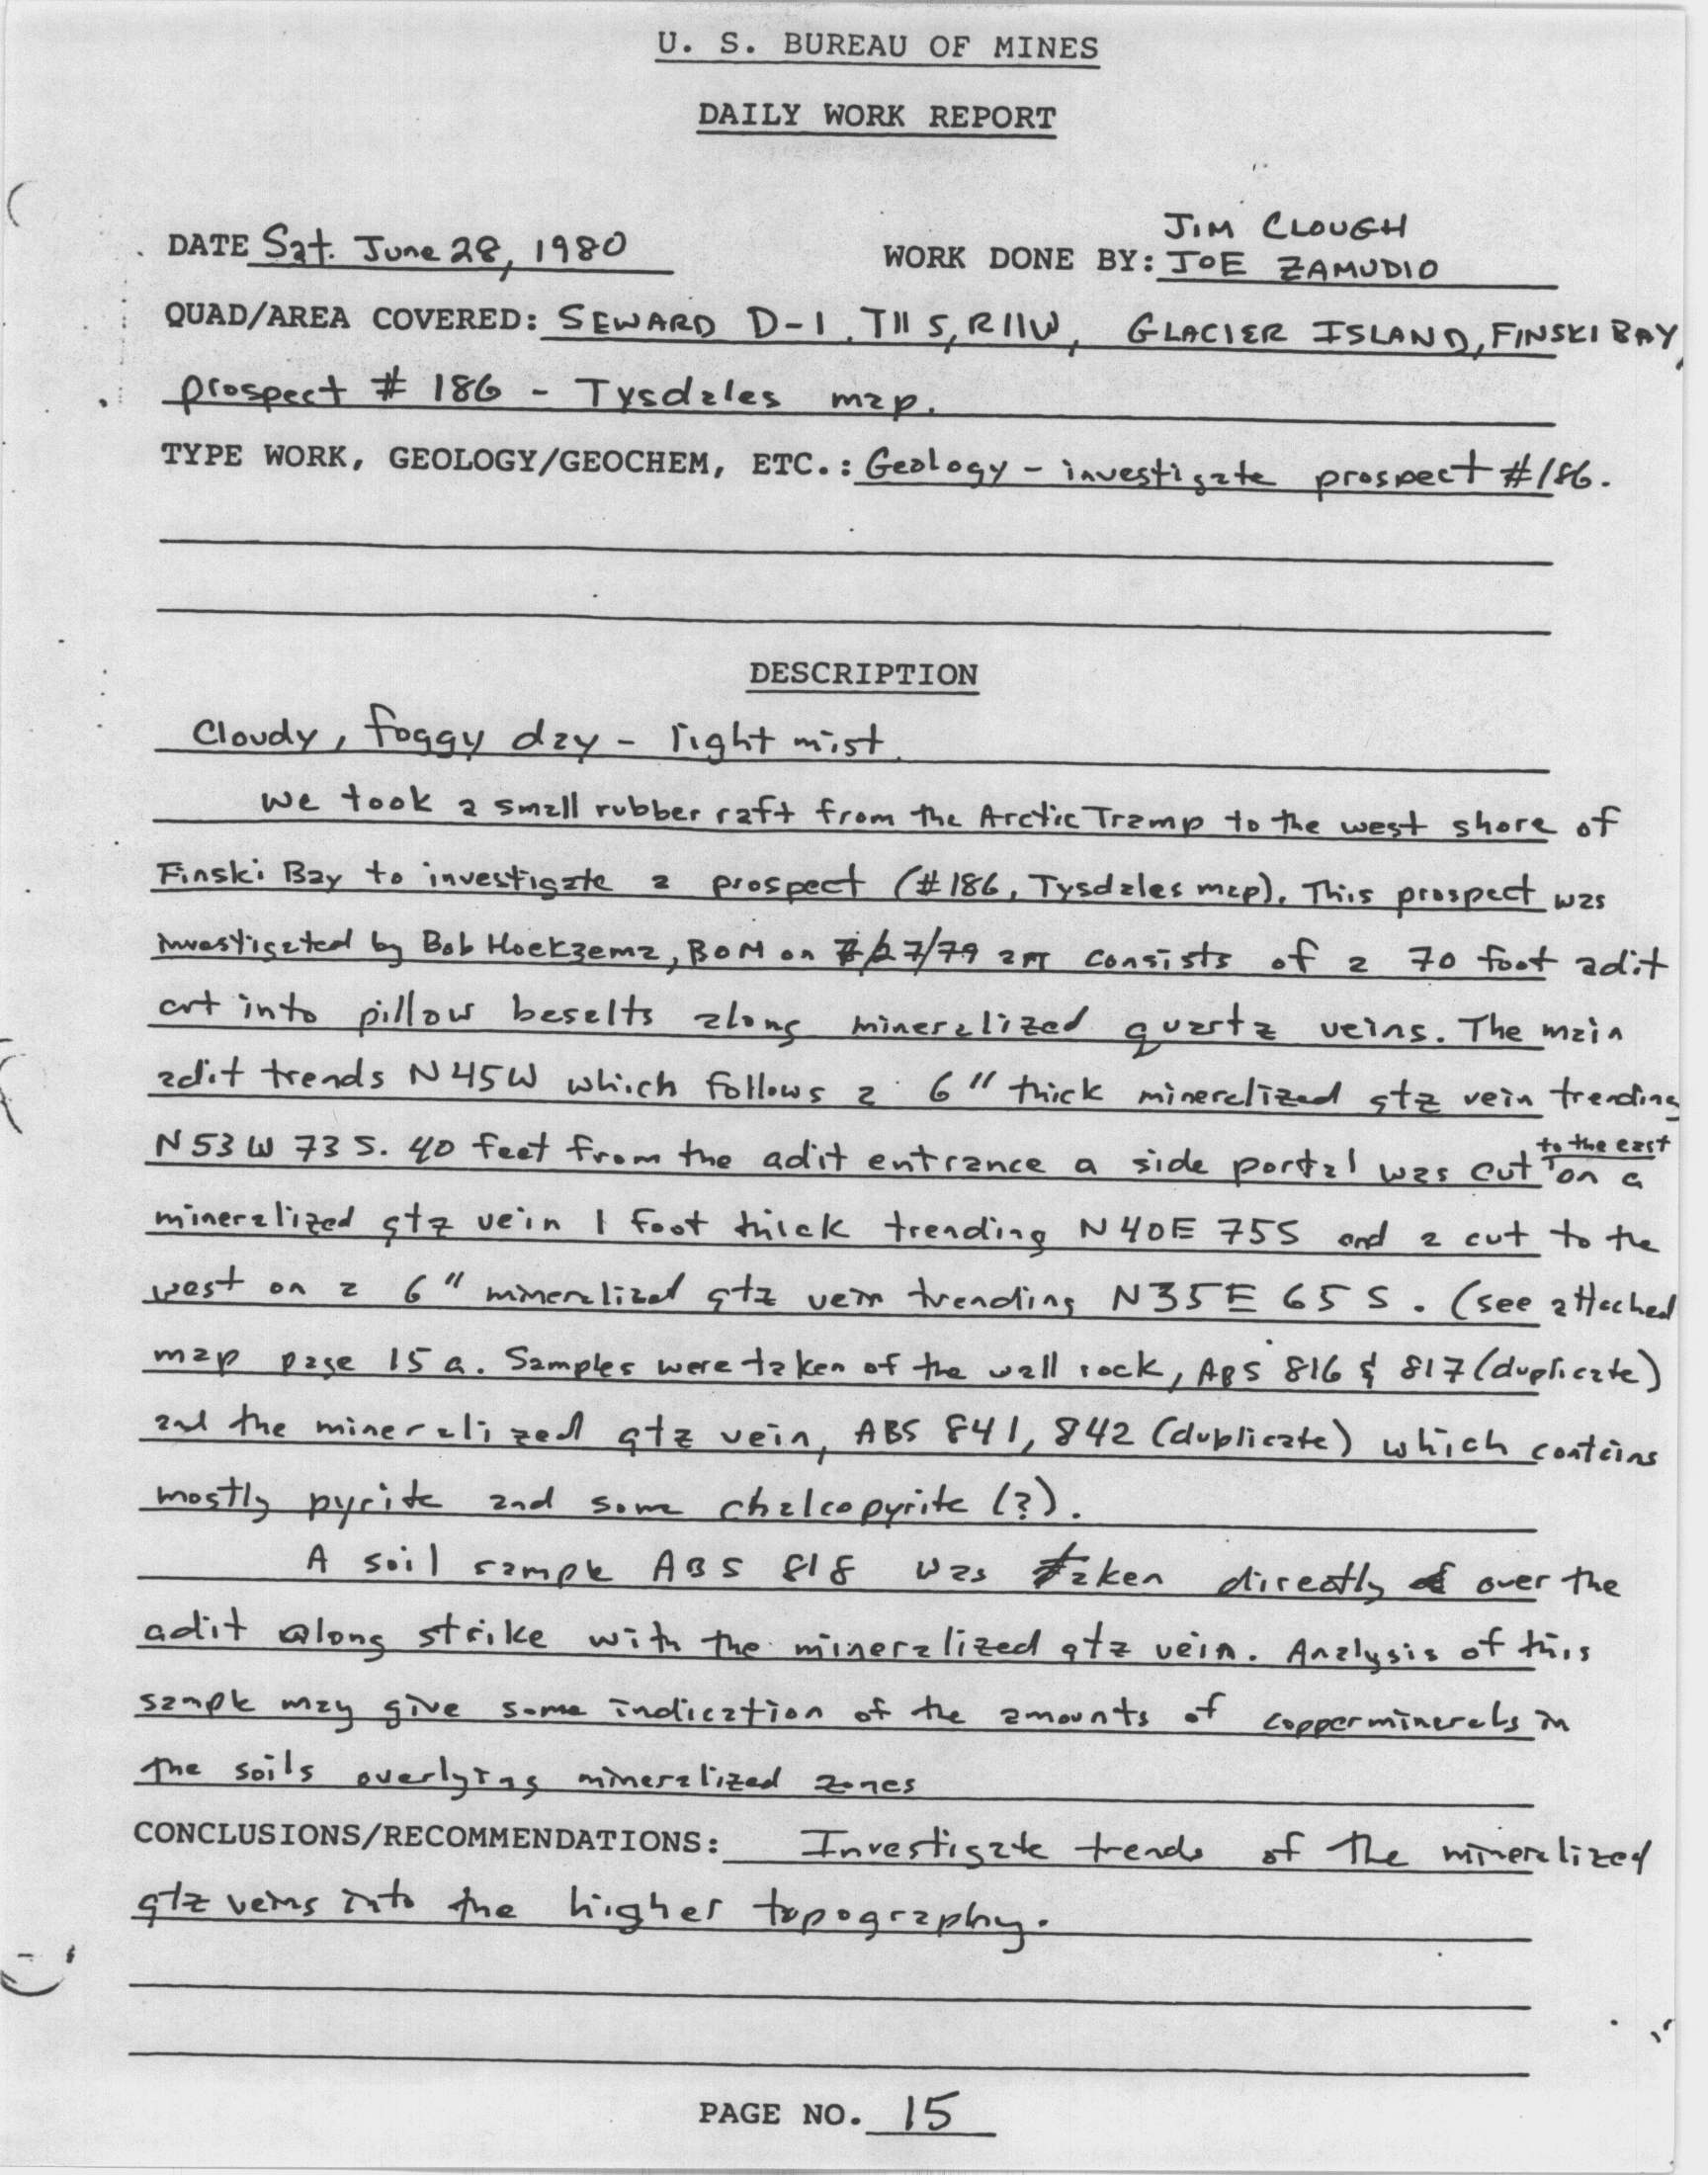 U. S. BUREAU OF MINES
DAILY WORK REPORT
JIM CLOUGH
DATE Sat. June 28, 1980 WORK DONE BY: JOE ZAMUDIO
QUAD/AREA COVERED: SEWARD D-1, T11S, R11W, GLACIER ISLAND, FINSKI BAY,
prospect # 186 - Tysdales map.
TYPE WORK, GEOLOGY/GEOCHEM, ETC.: Geology - investigate prospect #186.
DESCRIPTION
Cloudy, foggy day - light mist.
We took a small rubber raft from the Arctic Tramp to the west shore of
Finski Bay to investigate a prospect (#186, Tysdales map). This prospect was
investigated by Bob Hoekzema, BOM on 7/27/79 consists of a 70 foot adit
cut into pillow beselts along mineralized quartz veins. The main
adit trends N45W which follows a 6" thick mineralized qtz vein trending
to the east
N53W 73S. 40 feet from the adit entrance a side portal was cut on a
mineralized qtz vein 1 foot thick trending N40E 75S and a cut to the
west on a 6" mineralized qtz vein trending N35E 65S. (see attached
map page 15a. Samples were taken of the wall rock, ABS 816 & 817 (duplicate)
and the mineralized qtz vein, ABS 841, 842 (duplicate) which contains
mostly pyrite and some chalcopyrite (?).
A soil sample ABS 818 was taken directly over the
adit along strike with the mineralized qtz vein. Analysis of this
sample may give some indication of the amounts of copper minerals in
the soils overlying mineralized zones
CONCLUSIONS/RECOMMENDATIONS: Investigate trends of the mineralized
qtz veins into the higher topography.
PAGE NO. 15